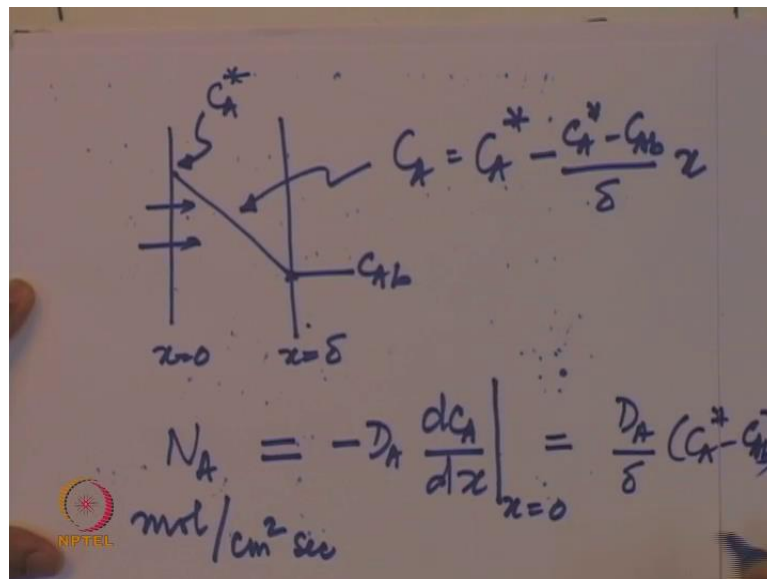 C_A^*
C_A = C_A^* - \frac{C_A^* - C_{Ab}}{\delta} x
C_{Ab}
x=0 x=δ
N_A = -D_A \frac{dC_A}{dx} |_{x=0} = \frac{D_A}{\delta} (C_A^* - C_{Ab}
mol/cm² sec
NPTEL